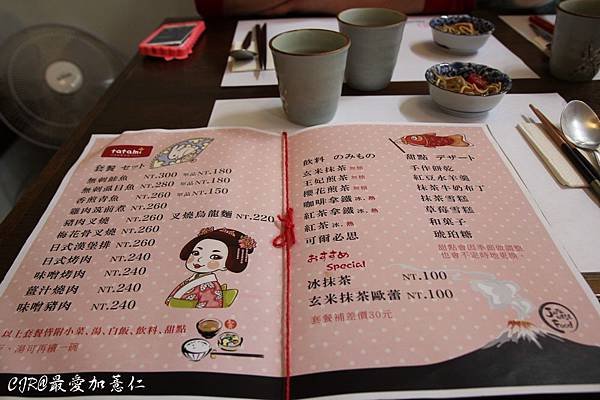 tatami
套餐 セット
無刺鮭魚 NT.300 單品NT.180
無刺虱目魚 NT.280 單品NT.180
香煎青魚 NT.260 單品NT.150
雞肉筑前煮 NT.260
豬肉叉燒 NT.260 叉燒烏龍麵 NT.220
梅花骨叉燒 NT.260
日式漢堡排 NT.260
日式烤肉 NT.240
味噌烤肉 NT.240
薑汁燒肉 NT.240
味噌豬肉 NT.240
以上套餐皆附小菜、湯、白飯、飲料、甜點
湯可再續一碗
飲料 のみもの
玄米抹茶 無糖
王妃煎茶 無糖
櫻花煎茶 無糖
咖啡拿鐵 冰.熱
紅茶拿鐵 冰.熱
紅茶 冰.熱
可爾必思
おすすめ
Special
冰抹茶 NT.100
玄米抹茶歐蕾 NT.100
套餐補差價30元
甜點 デザート
手作餅乾
紅豆水羊羹
抹茶牛奶布丁
抹茶雪糕
草莓雪糕
和菓子
琥珀糖
甜點會因季節做調整
也會不定時地更換。
Japanese Food
CJR@最愛加薏仁